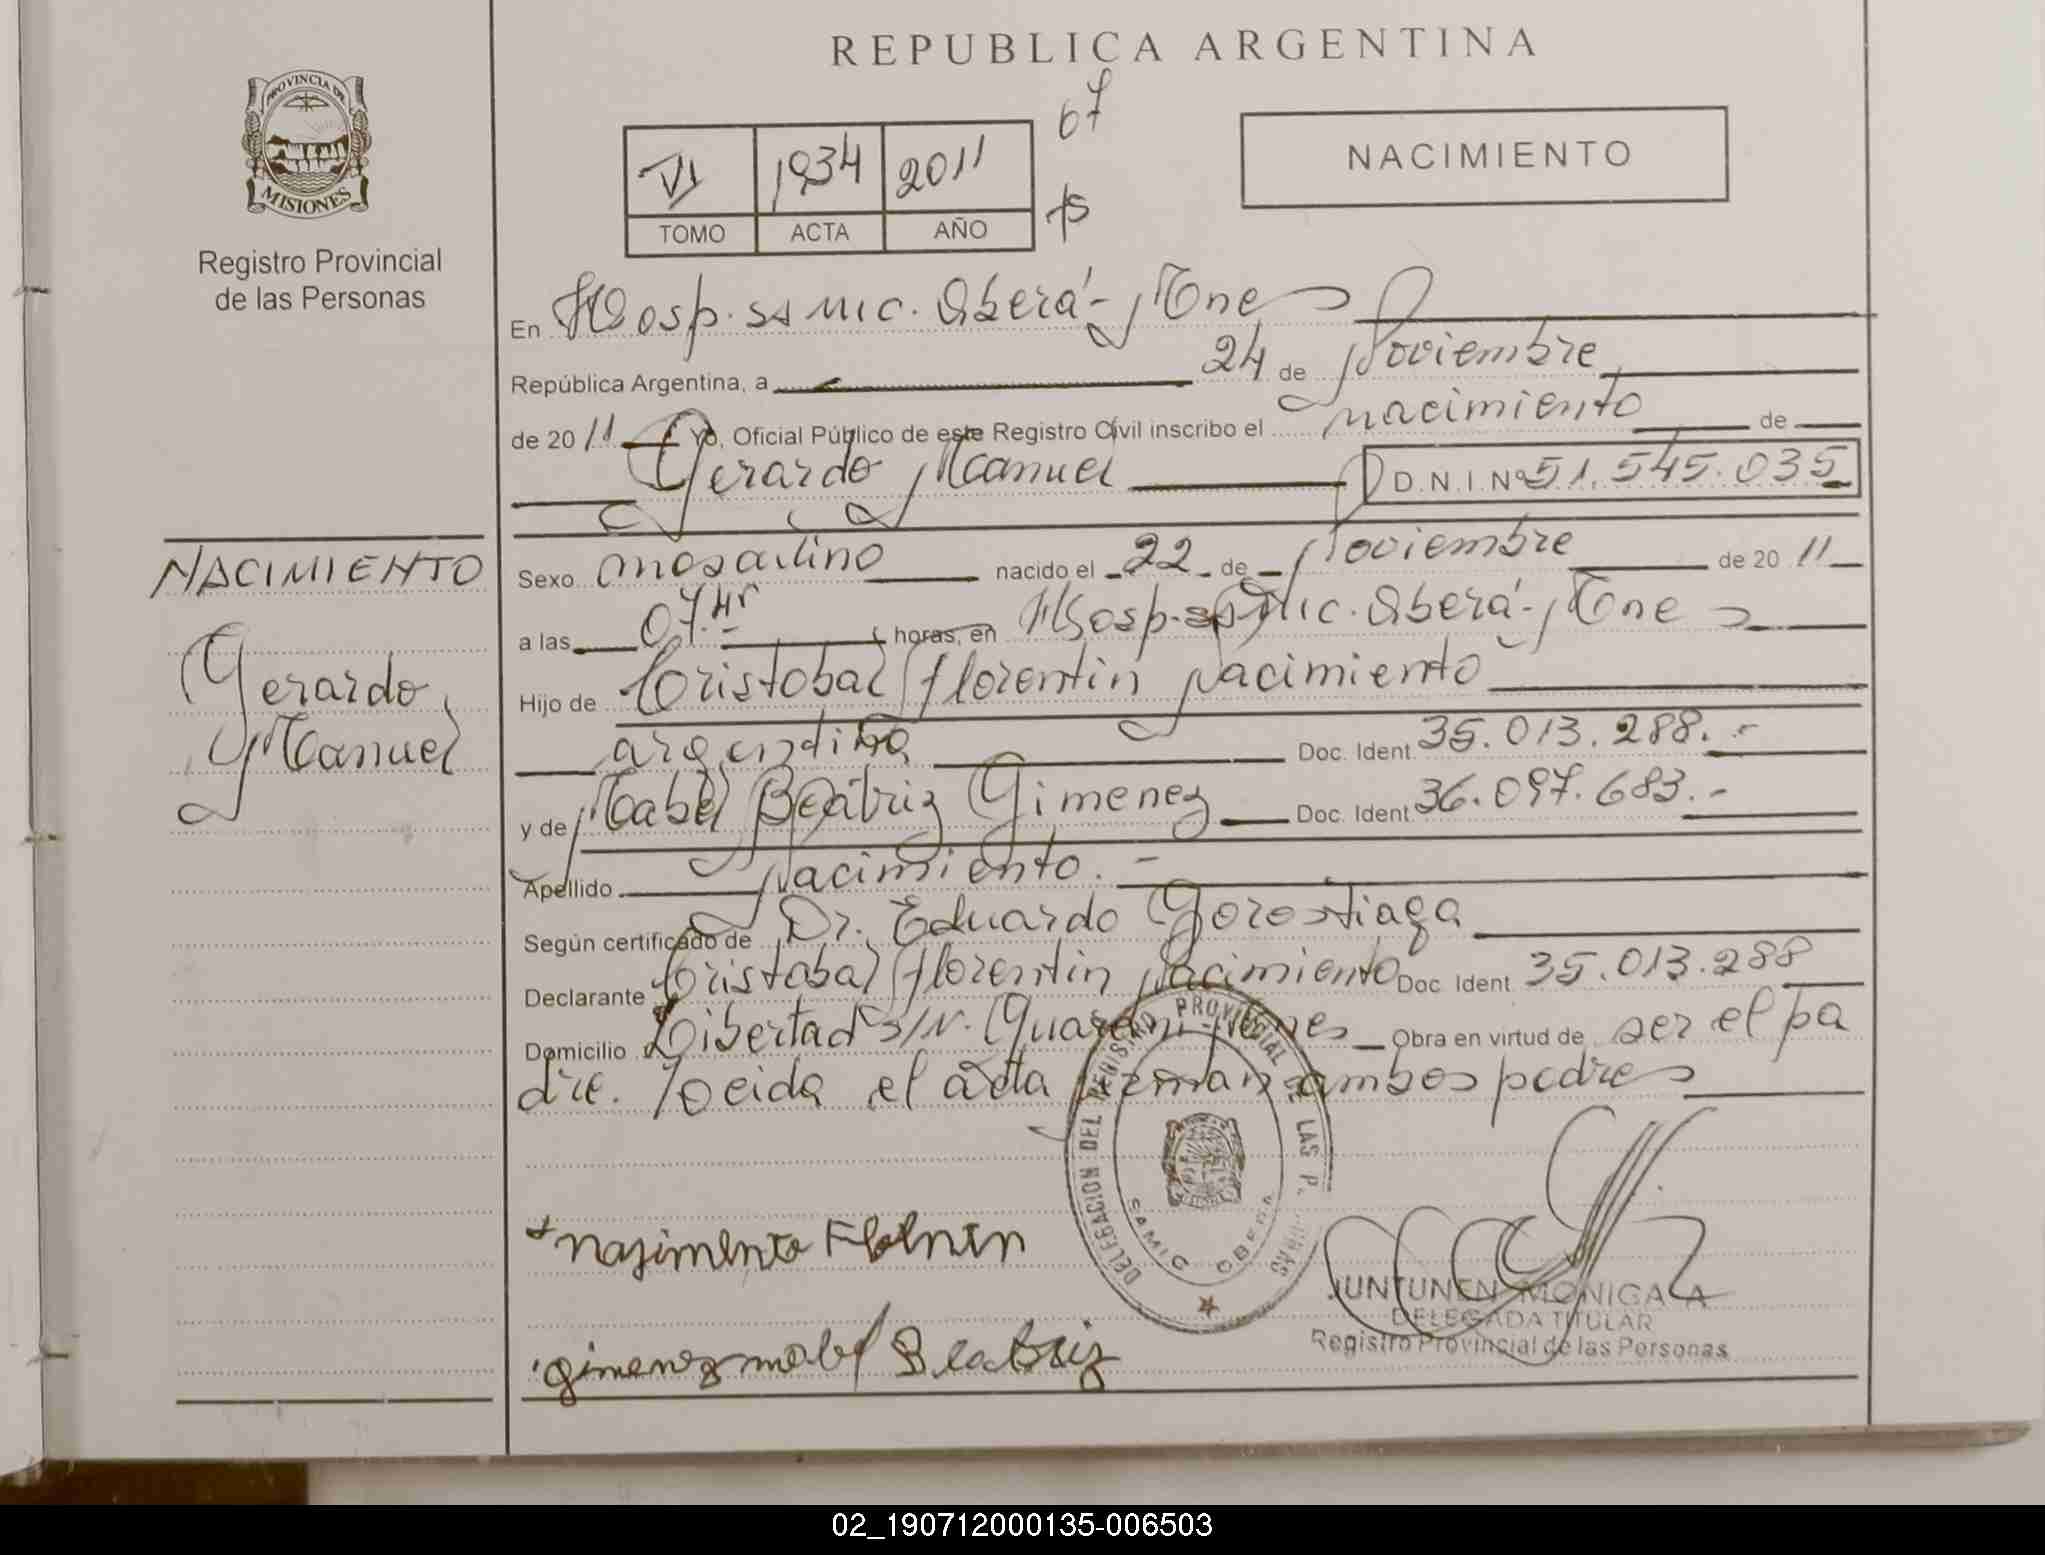 REPUBLICA ARGENTINA
PROVINCIA DE
MISIONES
Registro Provincial
de las Personas
VI 1934 2011
TOMO ACTA AÑO
67
NACIMIENTO
En Hosp. SAMIC. Oberá - Mnes
República Argentina, a 24 de Noviembre
de 20 11 Yo, Oficial Público de este Registro Civil inscribo el nacimiento de
Gerardo Manuel D.N.I. Nº 51.545.035
Sexo masculino nacido el 22 de Noviembre de 20 11
a las 07.Hr horas, en Hosp. SAMIC. Oberá - Mnes
Hijo de Cristobal Florentin Nacimiento
argentina Doc. Ident. 35.013.288.-
y de Mabel Beatriz Gimenez Doc. Ident 36.097.683.-
Apellido Nacimiento. -
Según certificado de Dr. Eduardo Gorostiaga
Declarante Cristobal Florentin Nacimiento Doc. Ident. 35.013.288
Domicilio Libertad S/N. Guaraní - Mnes Obra en virtud de ser el pa
dre. Leida el acta firman ambos padres
NACIMIENTO
Gerardo
Manuel
DELEGACION DEL REGISTRO PROVINCIAL DE LAS P.
SAMIC OBERA
nasimento
gimenez mabel Beatriz
JUNTUNEN MONICA A
DELEGADA TITULAR
Registro Provincial de las Personas
02_190712000135-006503